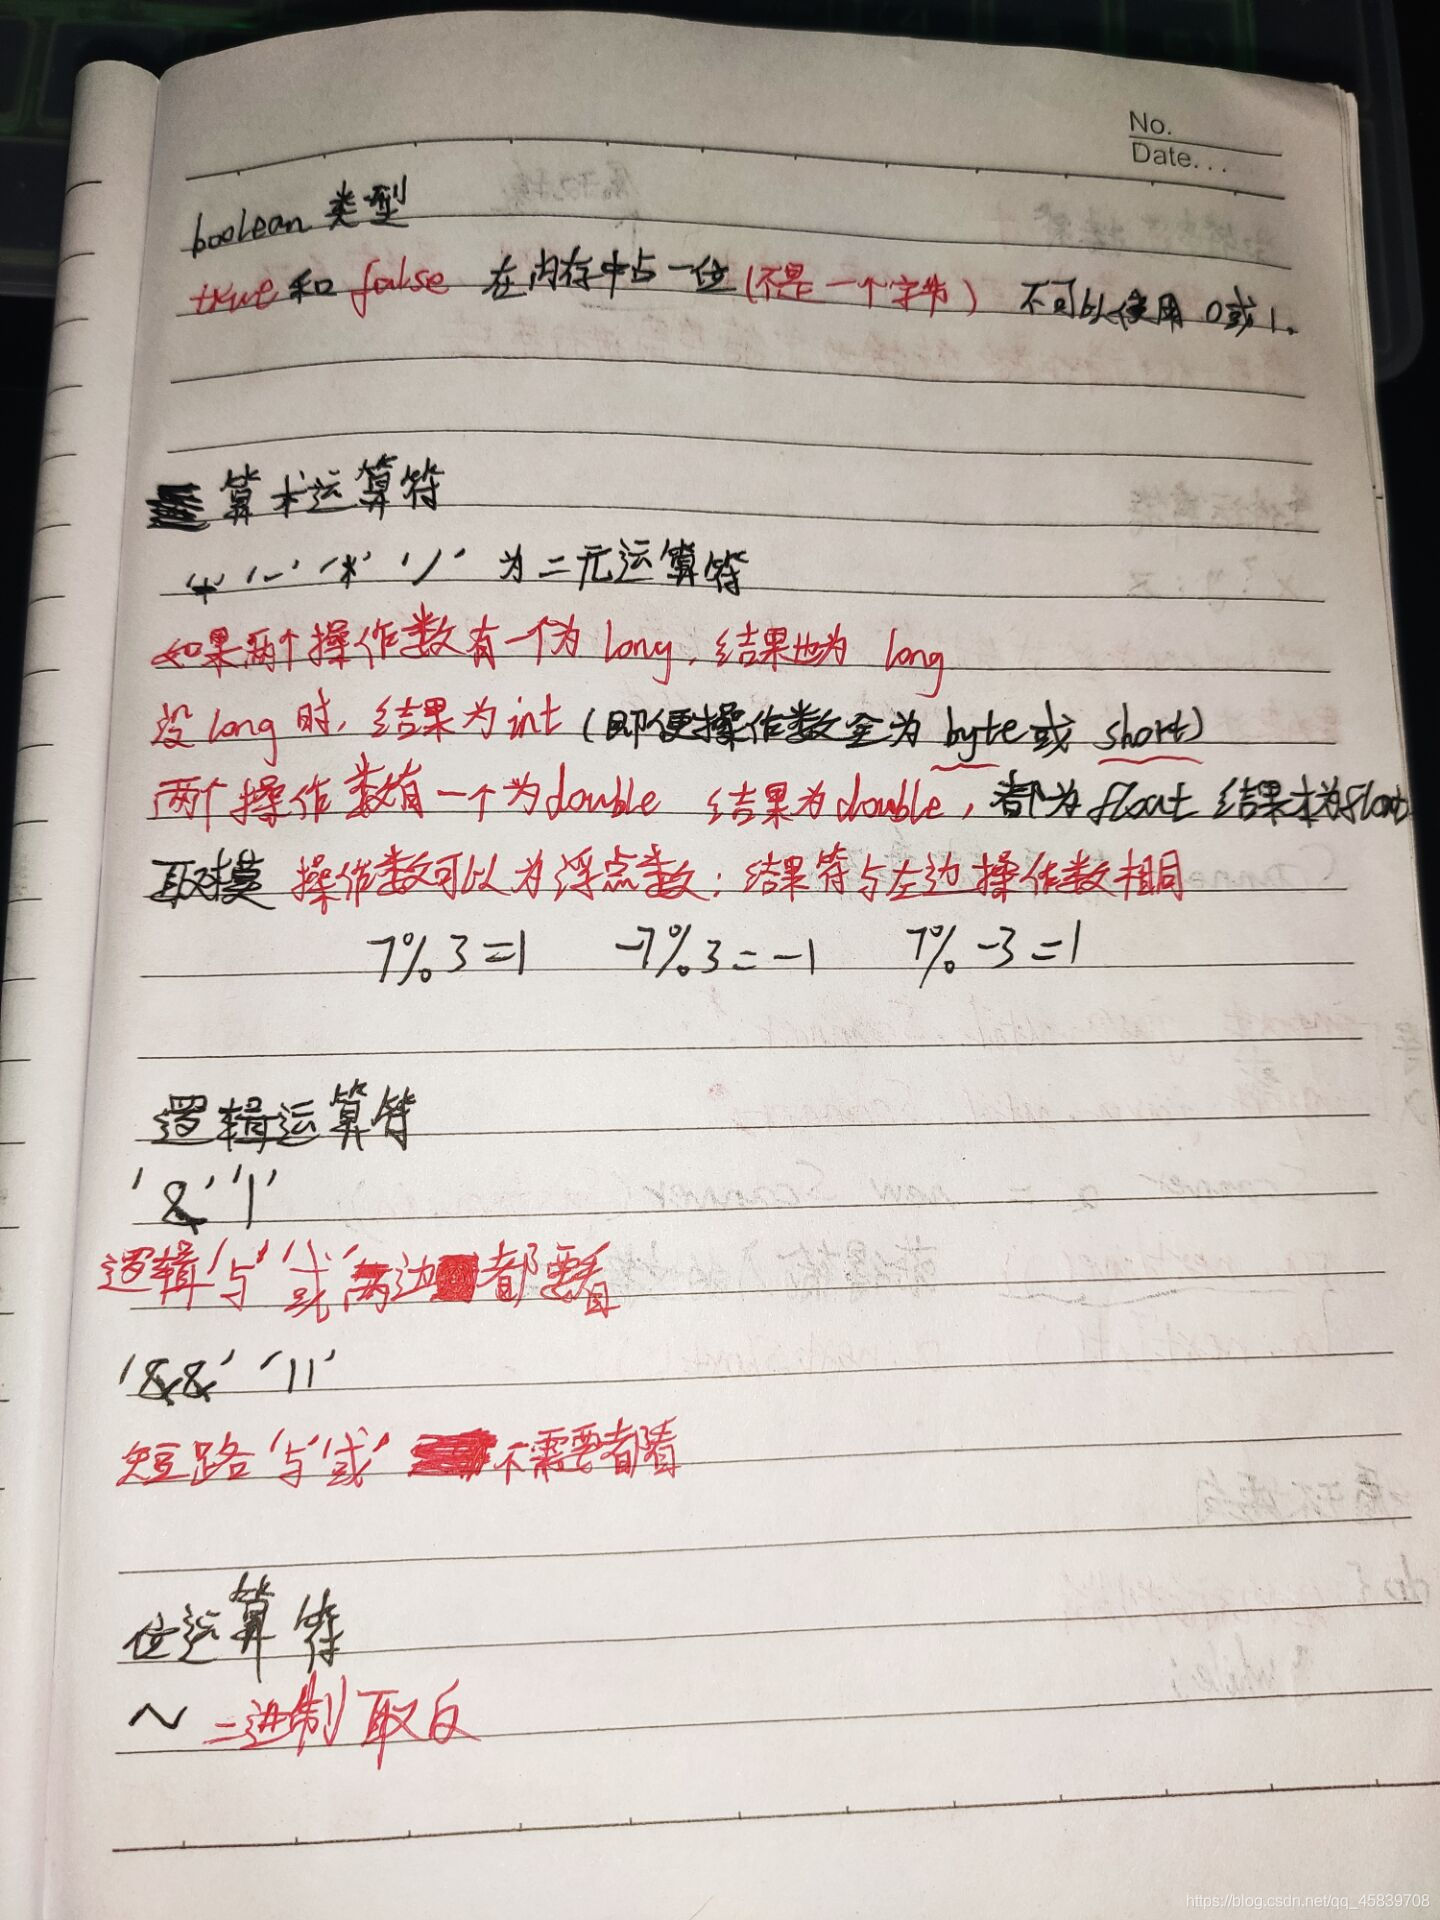 No.
Date...
boolean 类型
true 和 false 在内存中占一位(不是一个字节) 不可以使用 0或1。
算术运算符
'+' '-' '*' '/' 为二元运算符
如果两个操作数有一个为 long, 结果也为 long
没 long 时, 结果为 int (即便操作数全为 byte或 short)
两个操作数有一个为double 结果为double, 都为 float 结果才为float
取模 操作数可以为浮点数; 结果符与左边操作数相同
7%3=1 -7%3=-1 7%-3=1
逻辑运算符
'&' '|'
逻辑'与' '或' 两边都要看
'&&' '||'
短路'与' '或' 不需要都看
位运算符
~ 二进制取反
https://blog.csdn.net/qq_45839708